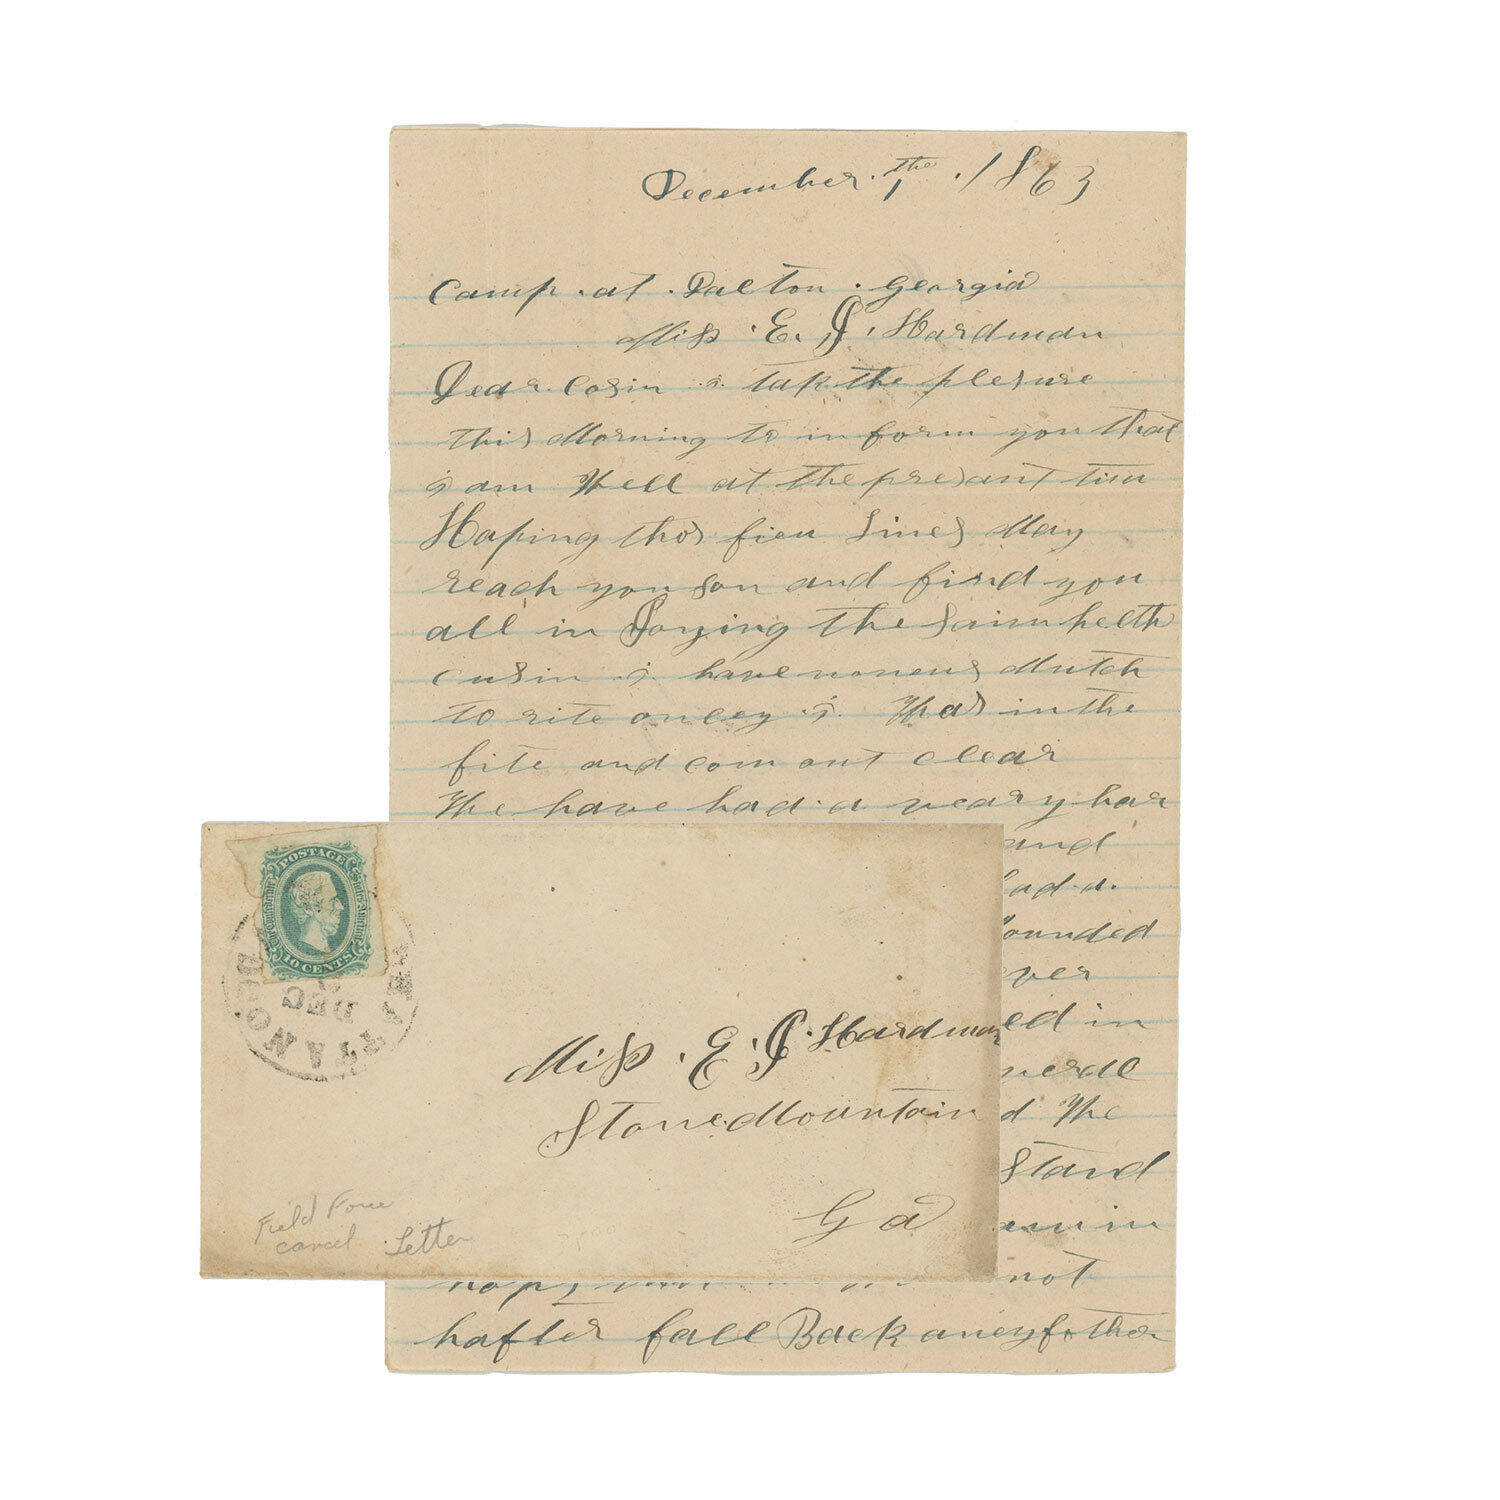 December. 1the . 1863
Camp . at . Dalton . Georgia
Miss . E. J. Hardman
Dear Cosin i. tak the plesure
this Morning to in form you that
i am Well at the presant tim
Hoping thos fieu Lines May
reach you son and find you
all in Joying the Saim helth
cusin . i. have no neus Mutch
to rite onley i. Was in the
fite and com out clear
We have had a veary har
and
had a.
Wounded
ever
ed in
nerae
d We
Stand
am in
not
hafter fall Back aney fother
POSTAGE
The Confederate States of America
10 CENTS
DEC
Miss . E. J. Hardman
Stone Mountain
Ga
Field Force
cancel Letter